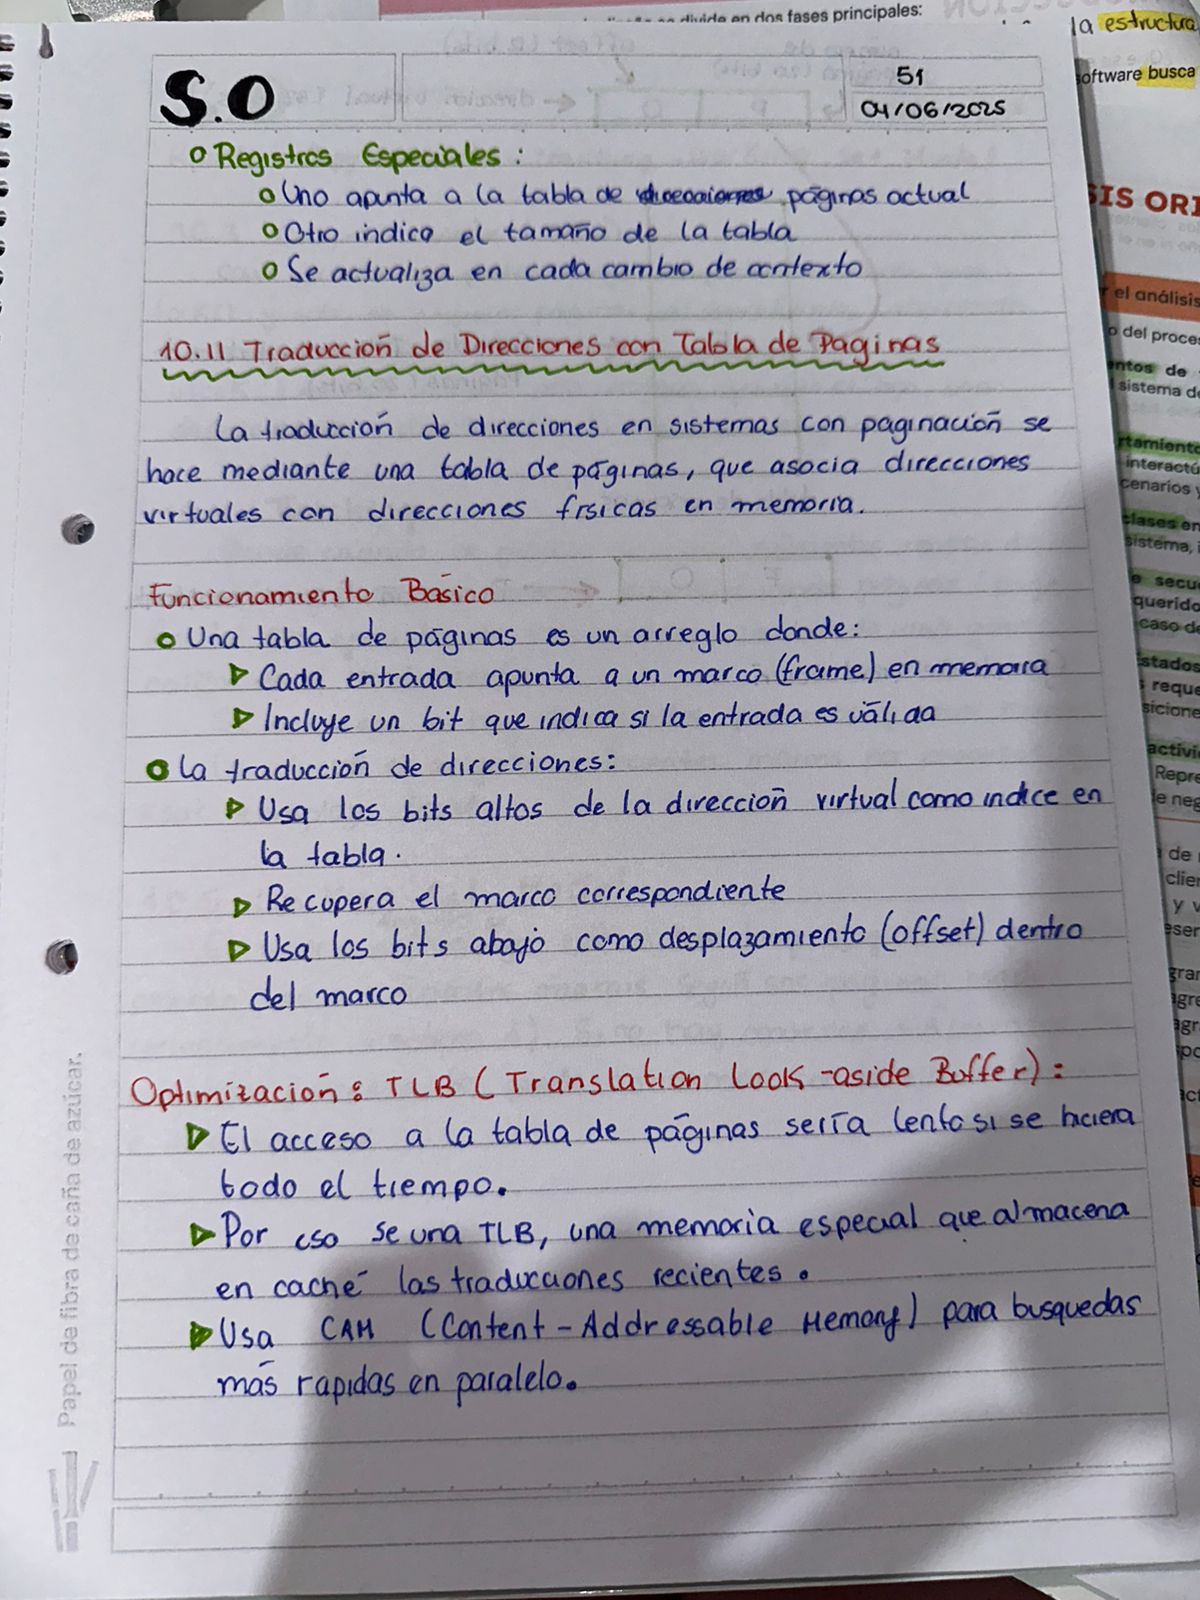 se divide en dos fases principales:
la estructura
software busca
S.O
51
04/06/2025
Registros Especiales:
Uno apunta a la tabla de páginas actual
Otro indica el tamaño de la tabla
Se actualiza en cada cambio de contexto
10.11 Traducción de Direcciones con Tabla de Paginas
La traducción de direcciones en sistemas con paginación se
hace mediante una tabla de páginas, que asocia direcciones
virtuales con direcciones físicas en memoria.
Funcionamiento Básico
Una tabla de páginas es un arreglo donde:
Cada entrada apunta a un marco (frame) en memoria
Incluye un bit que indica si la entrada es válida
La traducción de direcciones:
Usa los bits altos de la dirección virtual como indice en
la tabla.
Recupera el marco correspondiente
Usa los bits abajo como desplazamiento (offset) dentro
del marco
Optimización: TLB (Translation Look-aside Buffer):
El acceso a la tabla de páginas sería lento si se hiciera
todo el tiempo.
Por eso se una TLB, una memoria especial que almacena
en caché las traducciones recientes.
Usa CAM (Content-Addressable Memory) para busquedas
más rapidas en paralelo.
Papel de fibra de caña de azúcar.
SIS ORI
el análisis
del proce
entos de
sistema d
rtamiento
interactú
cenarios y
clases en
sistema, i
e secu
querido
caso de
stados
reque
sicione
activi
Repre
e neg
de
clier
y v